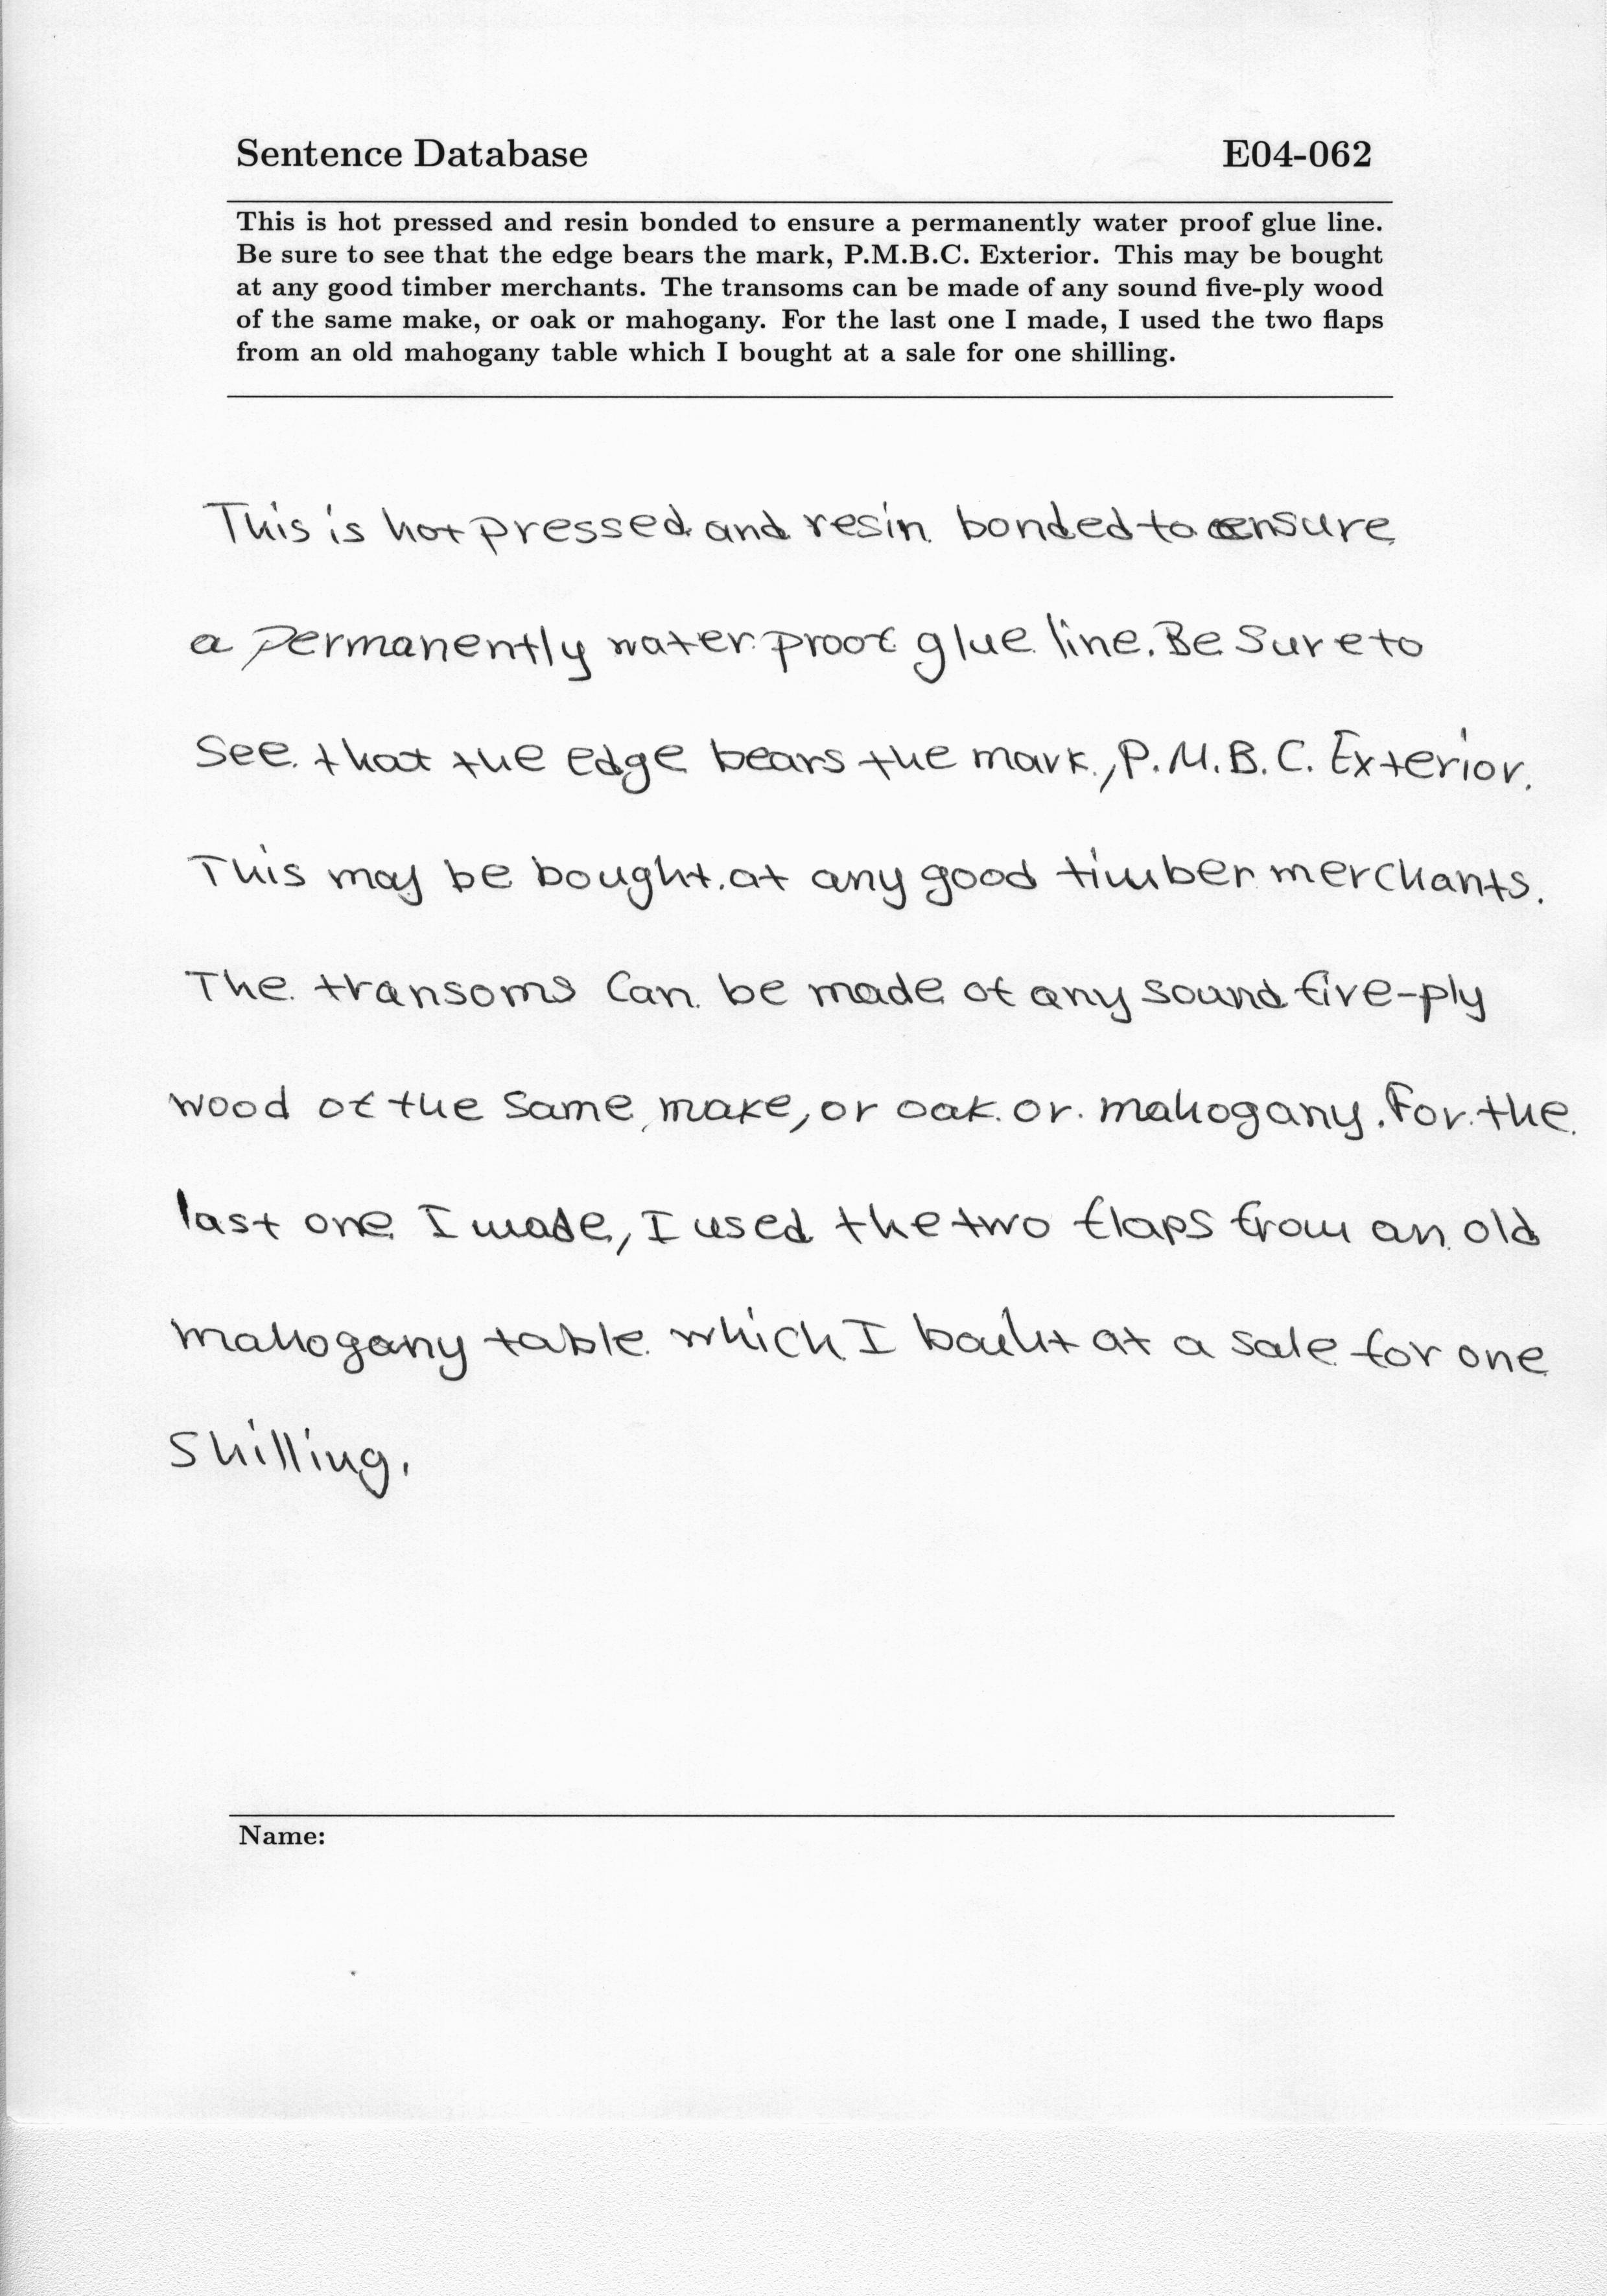 Sentence Database E04-062
This is hot pressed and resin bonded to ensure a permanently water proof glue line.
Be sure to see that the edge bears the mark, P.M.B.C. Exterior. This may be bought
at any good timber merchants. The transoms can be made of any sound five-ply wood
of the same make, or oak or mahogany. For the last one I made, I used the two flaps
from an old mahogany table which I bought at a sale for one shilling.
This is hot pressed and resin bonded to ensure
a permanently water proof glue line. Be sure to
see that the edge bears the mark, P.M.B.C. Exterior.
This may be bought at any good timber merchants.
The transoms can be made of any sound five-ply
wood of the same make, or oak or mahogany. For the
last one I made, I used the two flaps from an old
mahogany table which I at a sale for one
shilling.
Name: